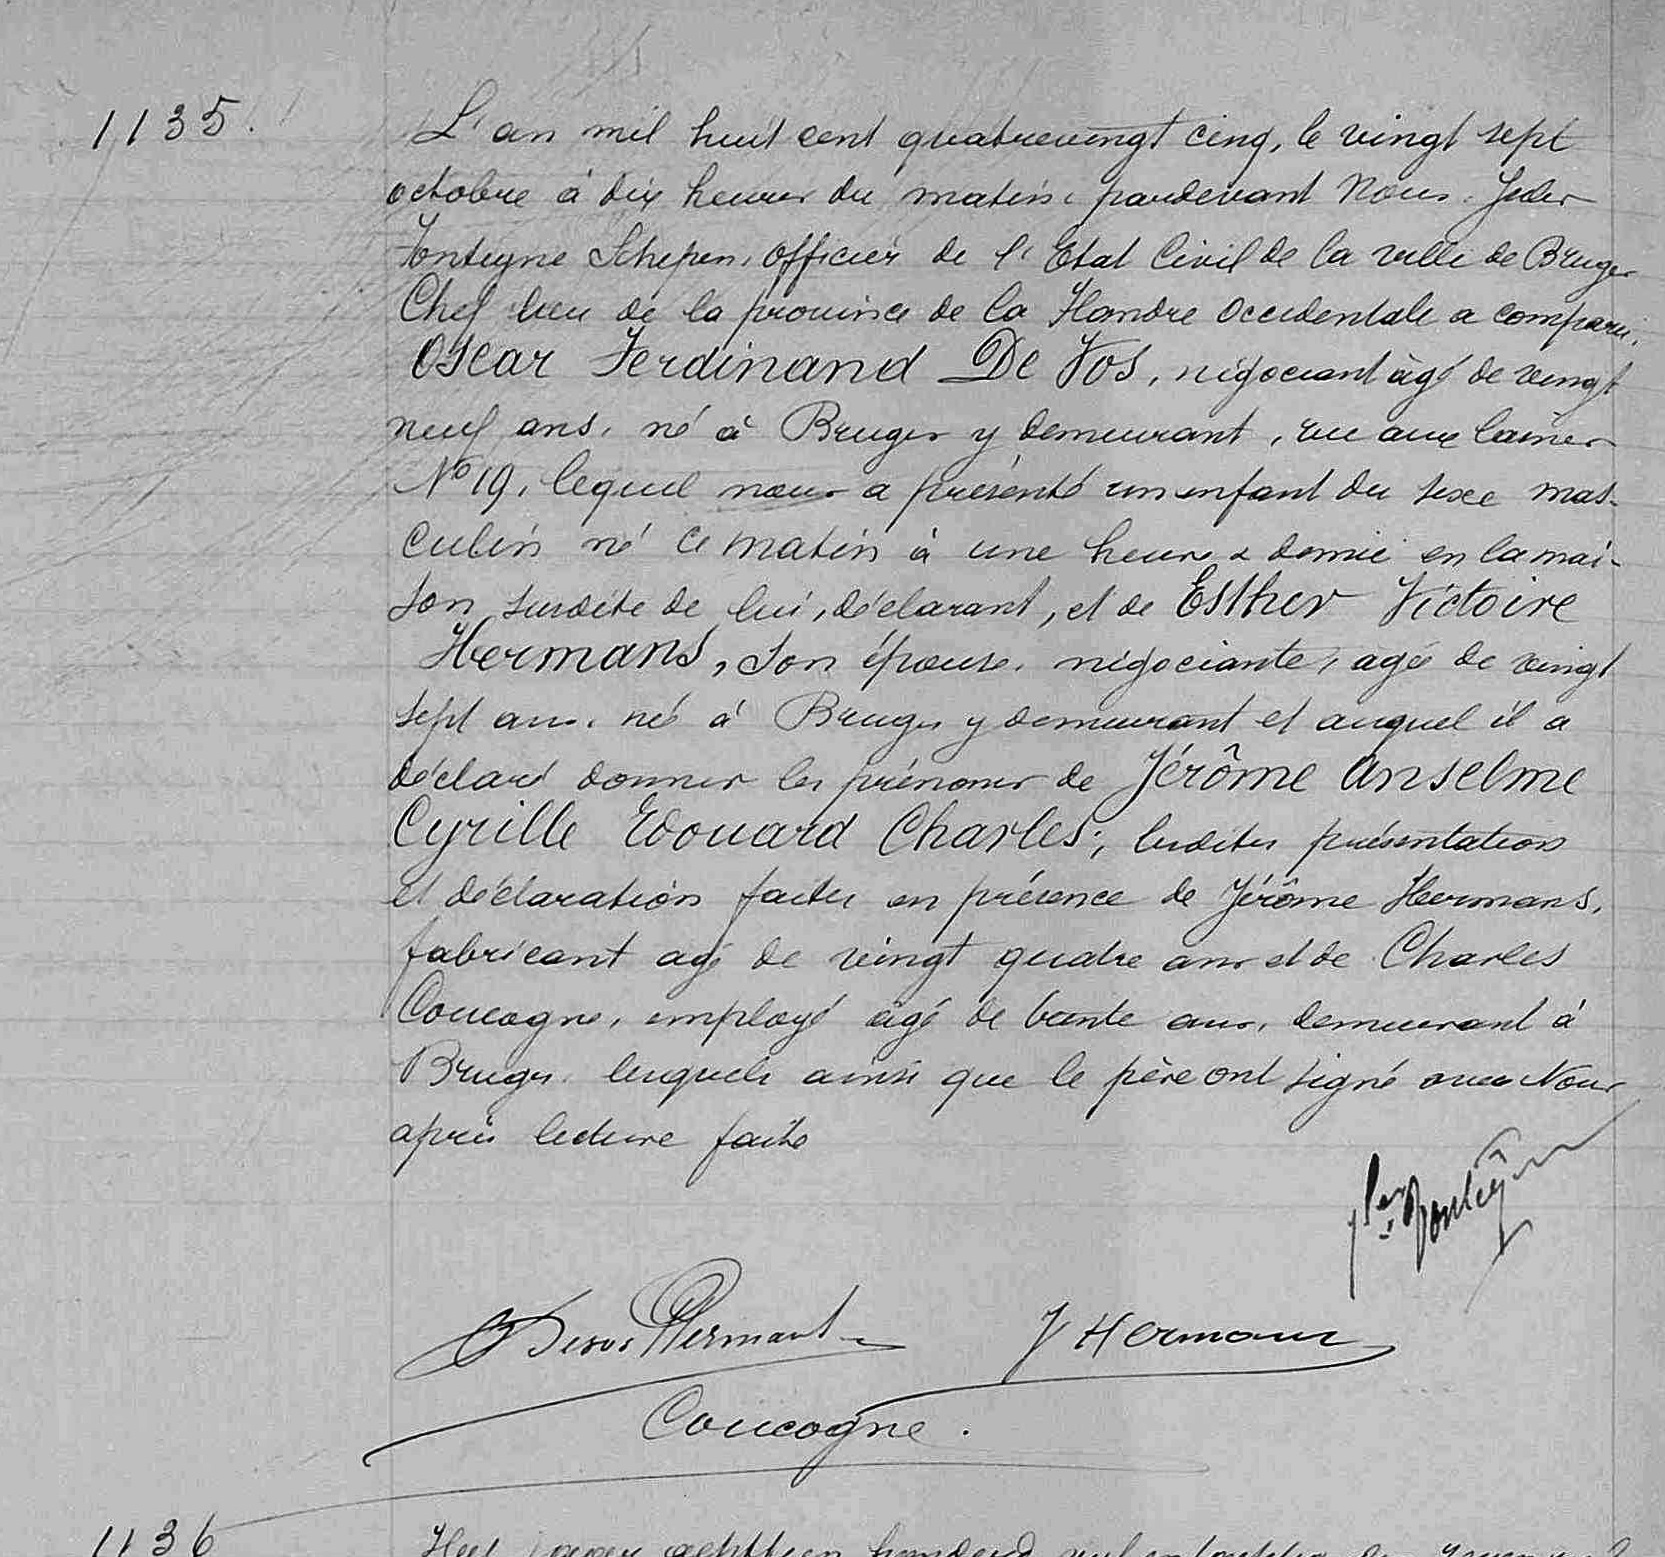 1135.
L'an mil huit cent quatrevingt cinq, le vingt sept
octobre à dix heures du matin, pardevant Nous Jules
Fonteyne Schepen, officier de l'Etat Civil de la ville de Bruges
Chef lieu de la province de la Flandre Occidentale a comparu,
Oscar Ferdinand De Vos, négociant âgé de vingt
neuf ans, né à Bruges y demeurant, rue aux laines
N° 19, lequel nous a présenté un enfant du sexe mas-
culin né ce matin à une heure & demie en la mai-
son susdite de lui, déclarant, et de Esther Victoire
Hermans, son épouse, négociante, agée de vingt
sept ans, né à Bruges y demeurant et auquel il a
déclaré donner les prénoms de Jérôme Anselme
Cyrille Edouard Charles; lesdites présentation
et déclaration faites en présence de Jérôme Hermans,
fabricant agé de vingt quatre ans et de Charles
Coucogne, employé âgé de trente ans, demeurant à
Bruges, lesquels ainsi que le père ont signé avec Nous
après lecture faite
Jules Fonteyne
O Devos Hermans
J Hermans
Coucogne.
1136